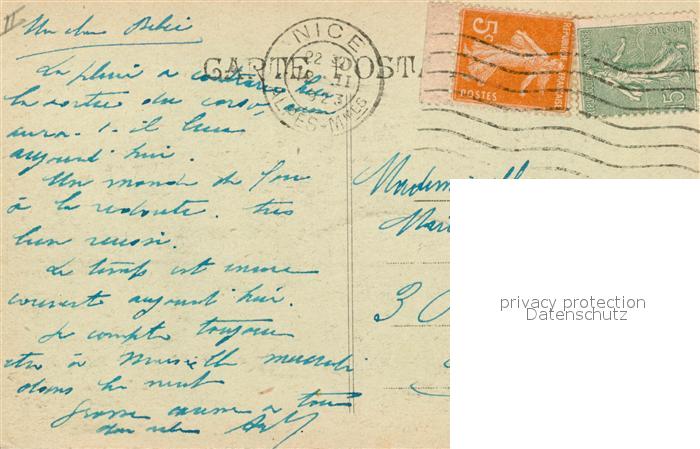 II
Mon cher Bébé
La pluie a contrarié hier
la sortie du corso, aussi
aura-t-il lieu
aujourd'hui.
Un monde de fou
à la redoute. très
bien réussi.
Le temps est encore
couvert aujourd'hui.
Je compte toujours
être à Marseille mercredi
dans la nuit
Grosse à tous
CARTE POSTA
NICE
22
II
23
ALPES-Mmes
5c
REPUBLIQUE FRANÇAISE
POSTES
15
Mademoiselle
Mari
3
privacy protection
Datenschutz